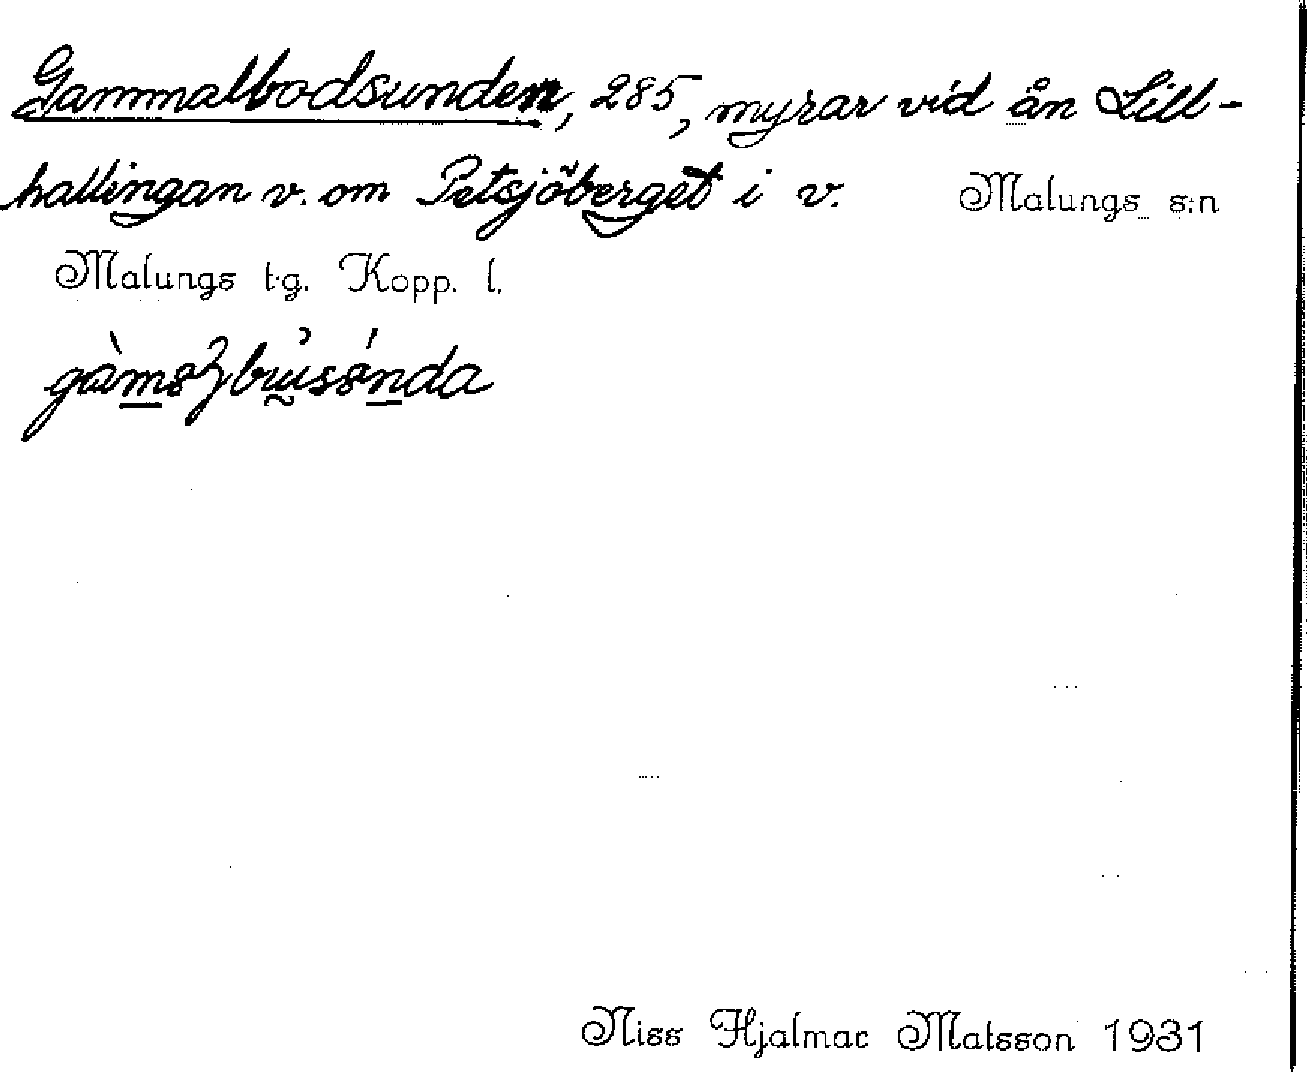 Gammalbodsunden, 285, myrar vid ån Lill-
hallingan v. om Petsjöberget i v. Malungs s:n
Malungs t.g. Kopp. l.
Niss Hjalmar Matsson 1931